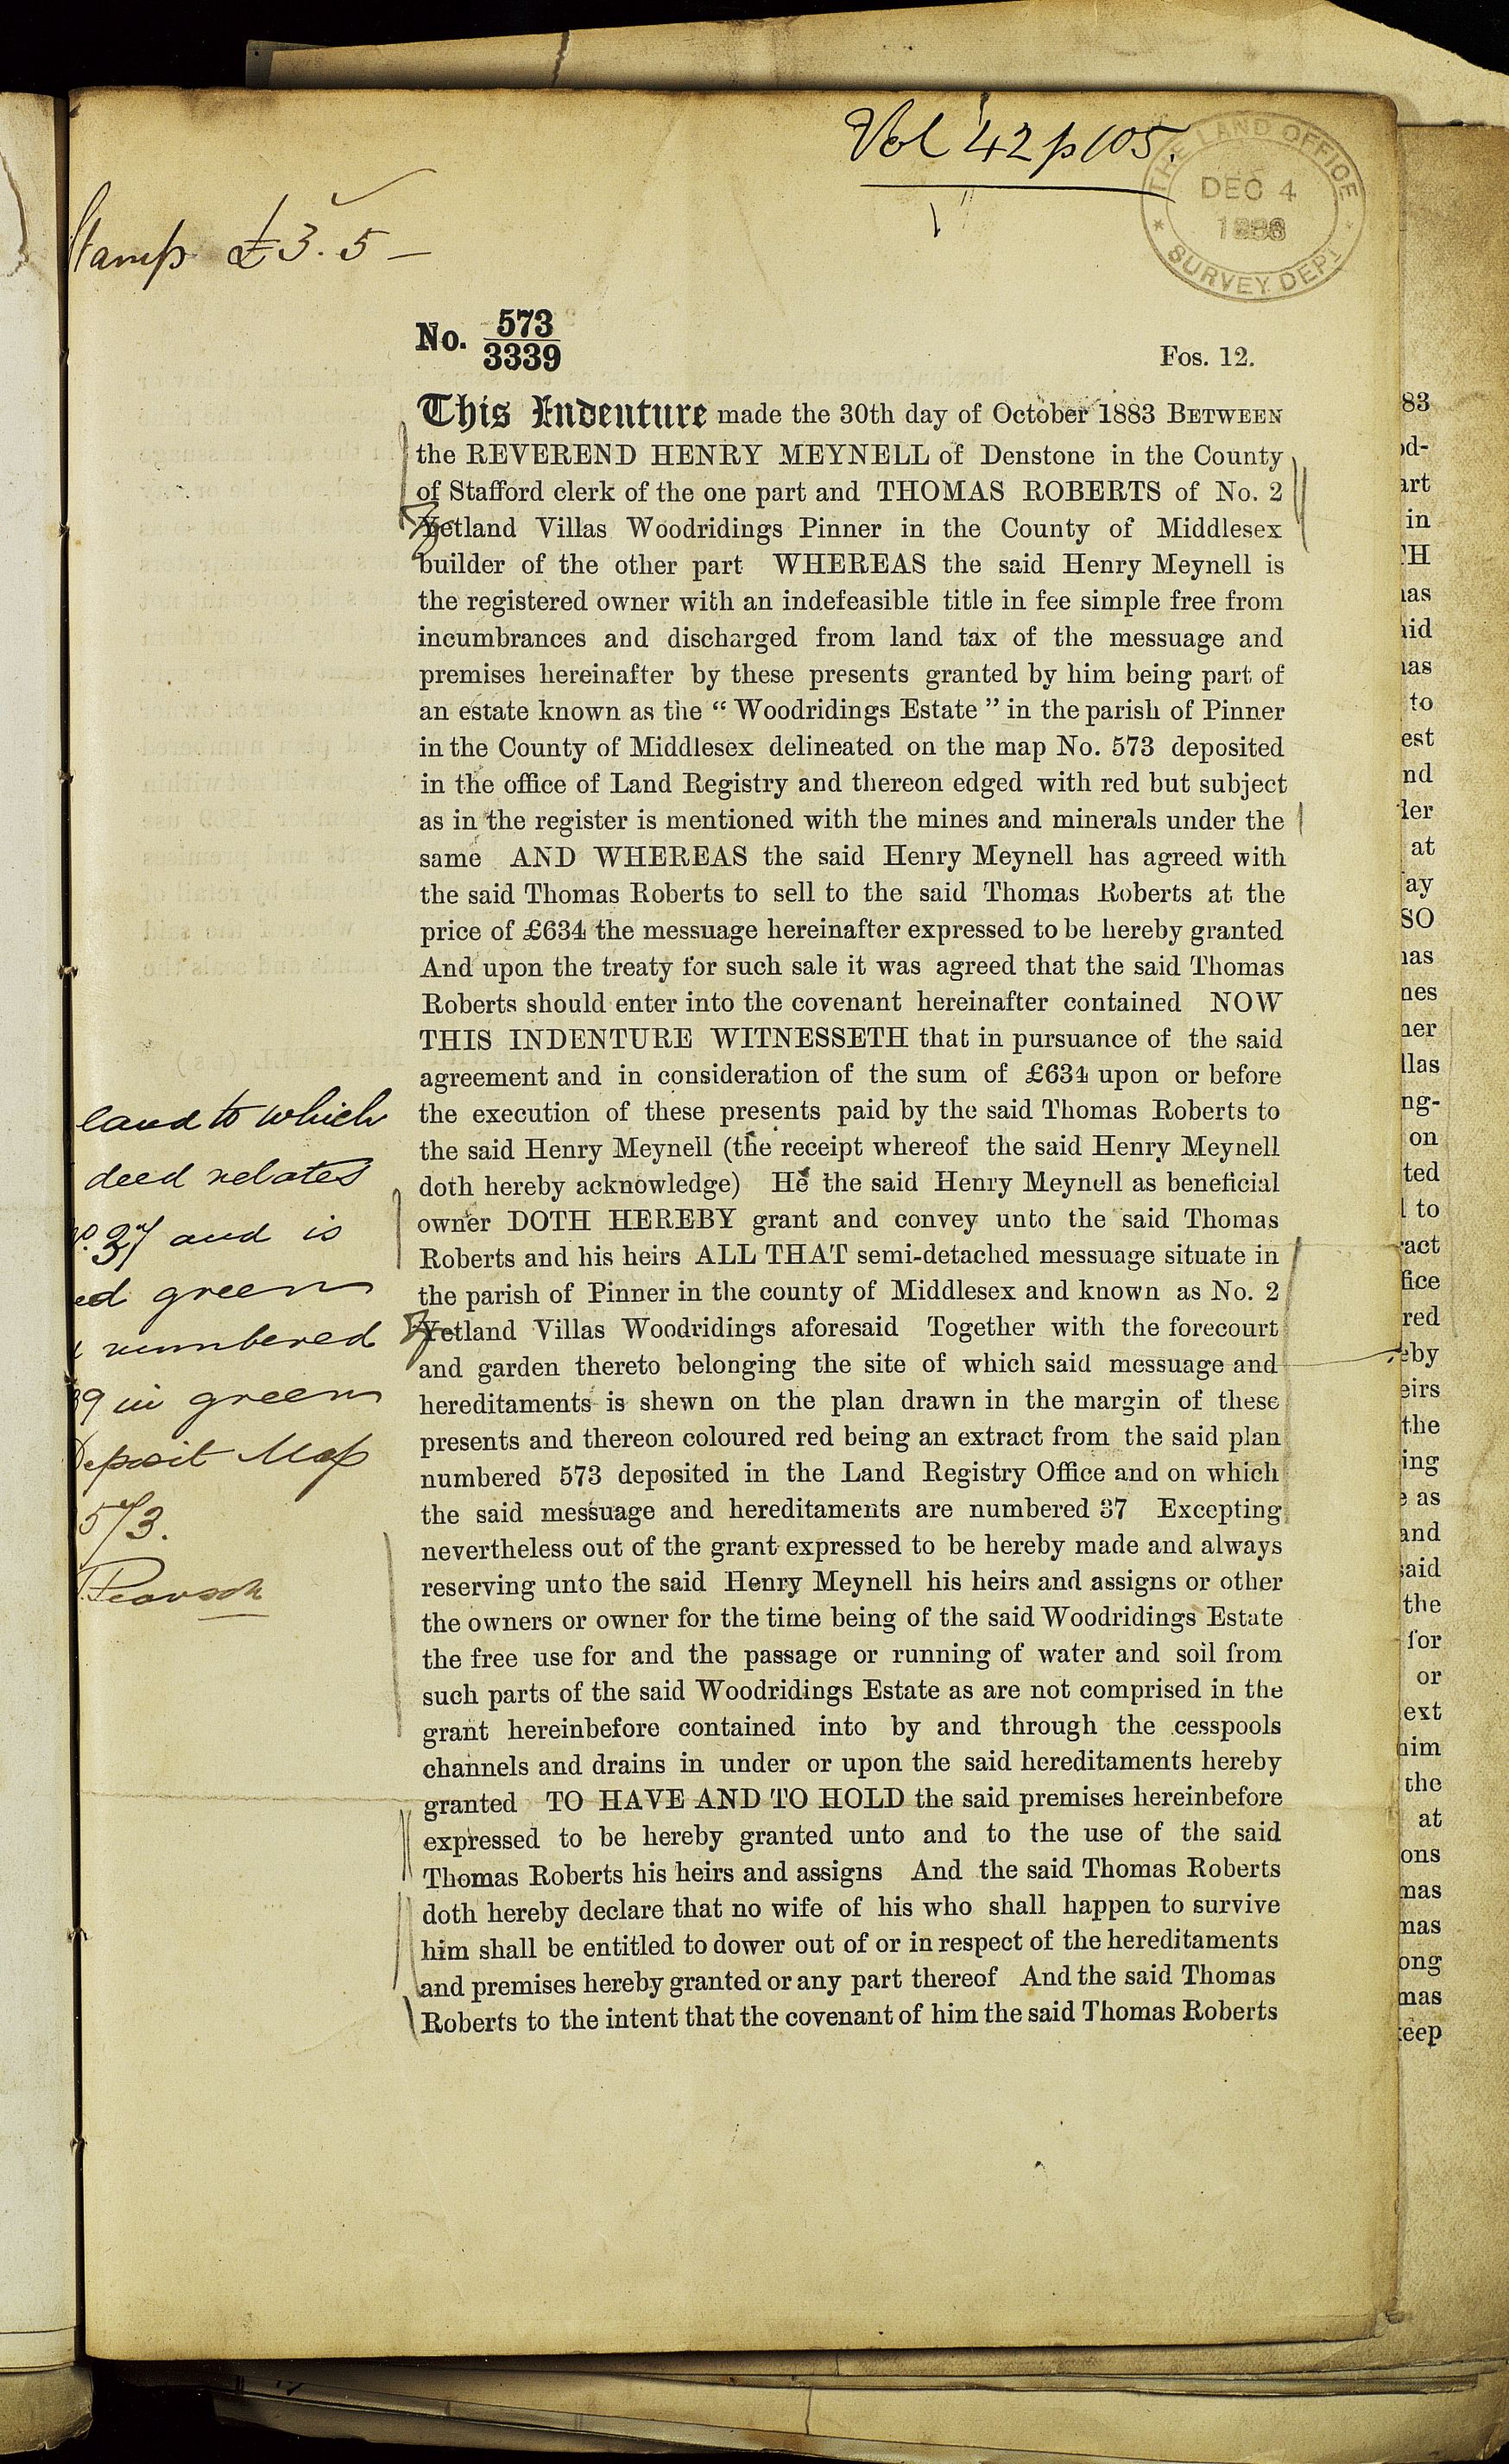 Vol 42 p 105.
THE LAND OFFICE
DEC 4
SURVEY DEPT
Stamp £3.5–
No. 573/3339
Fos. 12.
This Indenture made the 30th day of October 1883 BETWEEN
the REVEREND HENRY MEYNELL of Denstone in the County
of Stafford clerk of the one part and THOMAS ROBERTS of No. 2
Yetland Villas Woodridings Pinner in the County of Middlesex
builder of the other part WHEREAS the said Henry Meynell is
the registered owner with an indefeasible title in fee simple free from
incumbrances and discharged from land tax of the messuage and
premises hereinafter by these presents granted by him being part of
an estate known as the “ Woodridings Estate ” in the parish of Pinner
in the County of Middlesex delineated on the map No. 573 deposited
in the office of Land Registry and thereon edged with red but subject
as in the register is mentioned with the mines and minerals under the
same AND WHEREAS the said Henry Meynell has agreed with
the said Thomas Roberts to sell to the said Thomas Roberts at the
price of £634 the messuage hereinafter expressed to be hereby granted
And upon the treaty for such sale it was agreed that the said Thomas
Roberts should enter into the covenant hereinafter contained NOW
THIS INDENTURE WITNESSETH that in pursuance of the said
agreement and in consideration of the sum of £634 upon or before
the execution of these presents paid by the said Thomas Roberts to
the said Henry Meynell (the receipt whereof the said Henry Meynell
doth hereby acknowledge) He the said Henry Meynell as beneficial
owner DOTH HEREBY grant and convey unto the said Thomas
Roberts and his heirs ALL THAT semi-detached messuage situate in
the parish of Pinner in the county of Middlesex and known as No. 2
Yetland Villas Woodridings aforesaid Together with the forecourt
and garden thereto belonging the site of which said messuage and
hereditaments is shewn on the plan drawn in the margin of these
presents and thereon coloured red being an extract from the said plan
numbered 573 deposited in the Land Registry Office and on which
the said messuage and hereditaments are numbered 37 Excepting
nevertheless out of the grant expressed to be hereby made and always
reserving unto the said Henry Meynell his heirs and assigns or other
the owners or owner for the time being of the said Woodridings Estate
the free use for and the passage or running of water and soil from
such parts of the said Woodridings Estate as are not comprised in the
grant hereinbefore contained into by and through the cesspools
channels and drains in under or upon the said hereditaments hereby
granted TO HAVE AND TO HOLD the said premises hereinbefore
expressed to be hereby granted unto and to the use of the said
Thomas Roberts his heirs and assigns And the said Thomas Roberts
doth hereby declare that no wife of his who shall happen to survive
him shall be entitled to dower out of or in respect of the hereditaments
and premises hereby granted or any part thereof And the said Thomas
Roberts to the intent that the covenant of him the said Thomas Roberts
land to which
deed relates
37 and is
green
numbered
9 in green
Deposit Map
573.
Pearson